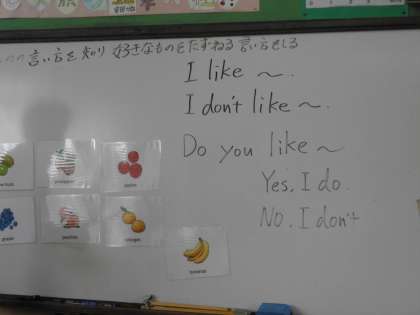 言い方を知り 好きなものをたずねる 言い方をしる
I like ~.
I don't like ~.
Do you like ~
Yes, I do.
No, I don't
kiwi fruits
pineapples
apples
grapes
peaches
oranges
bananas